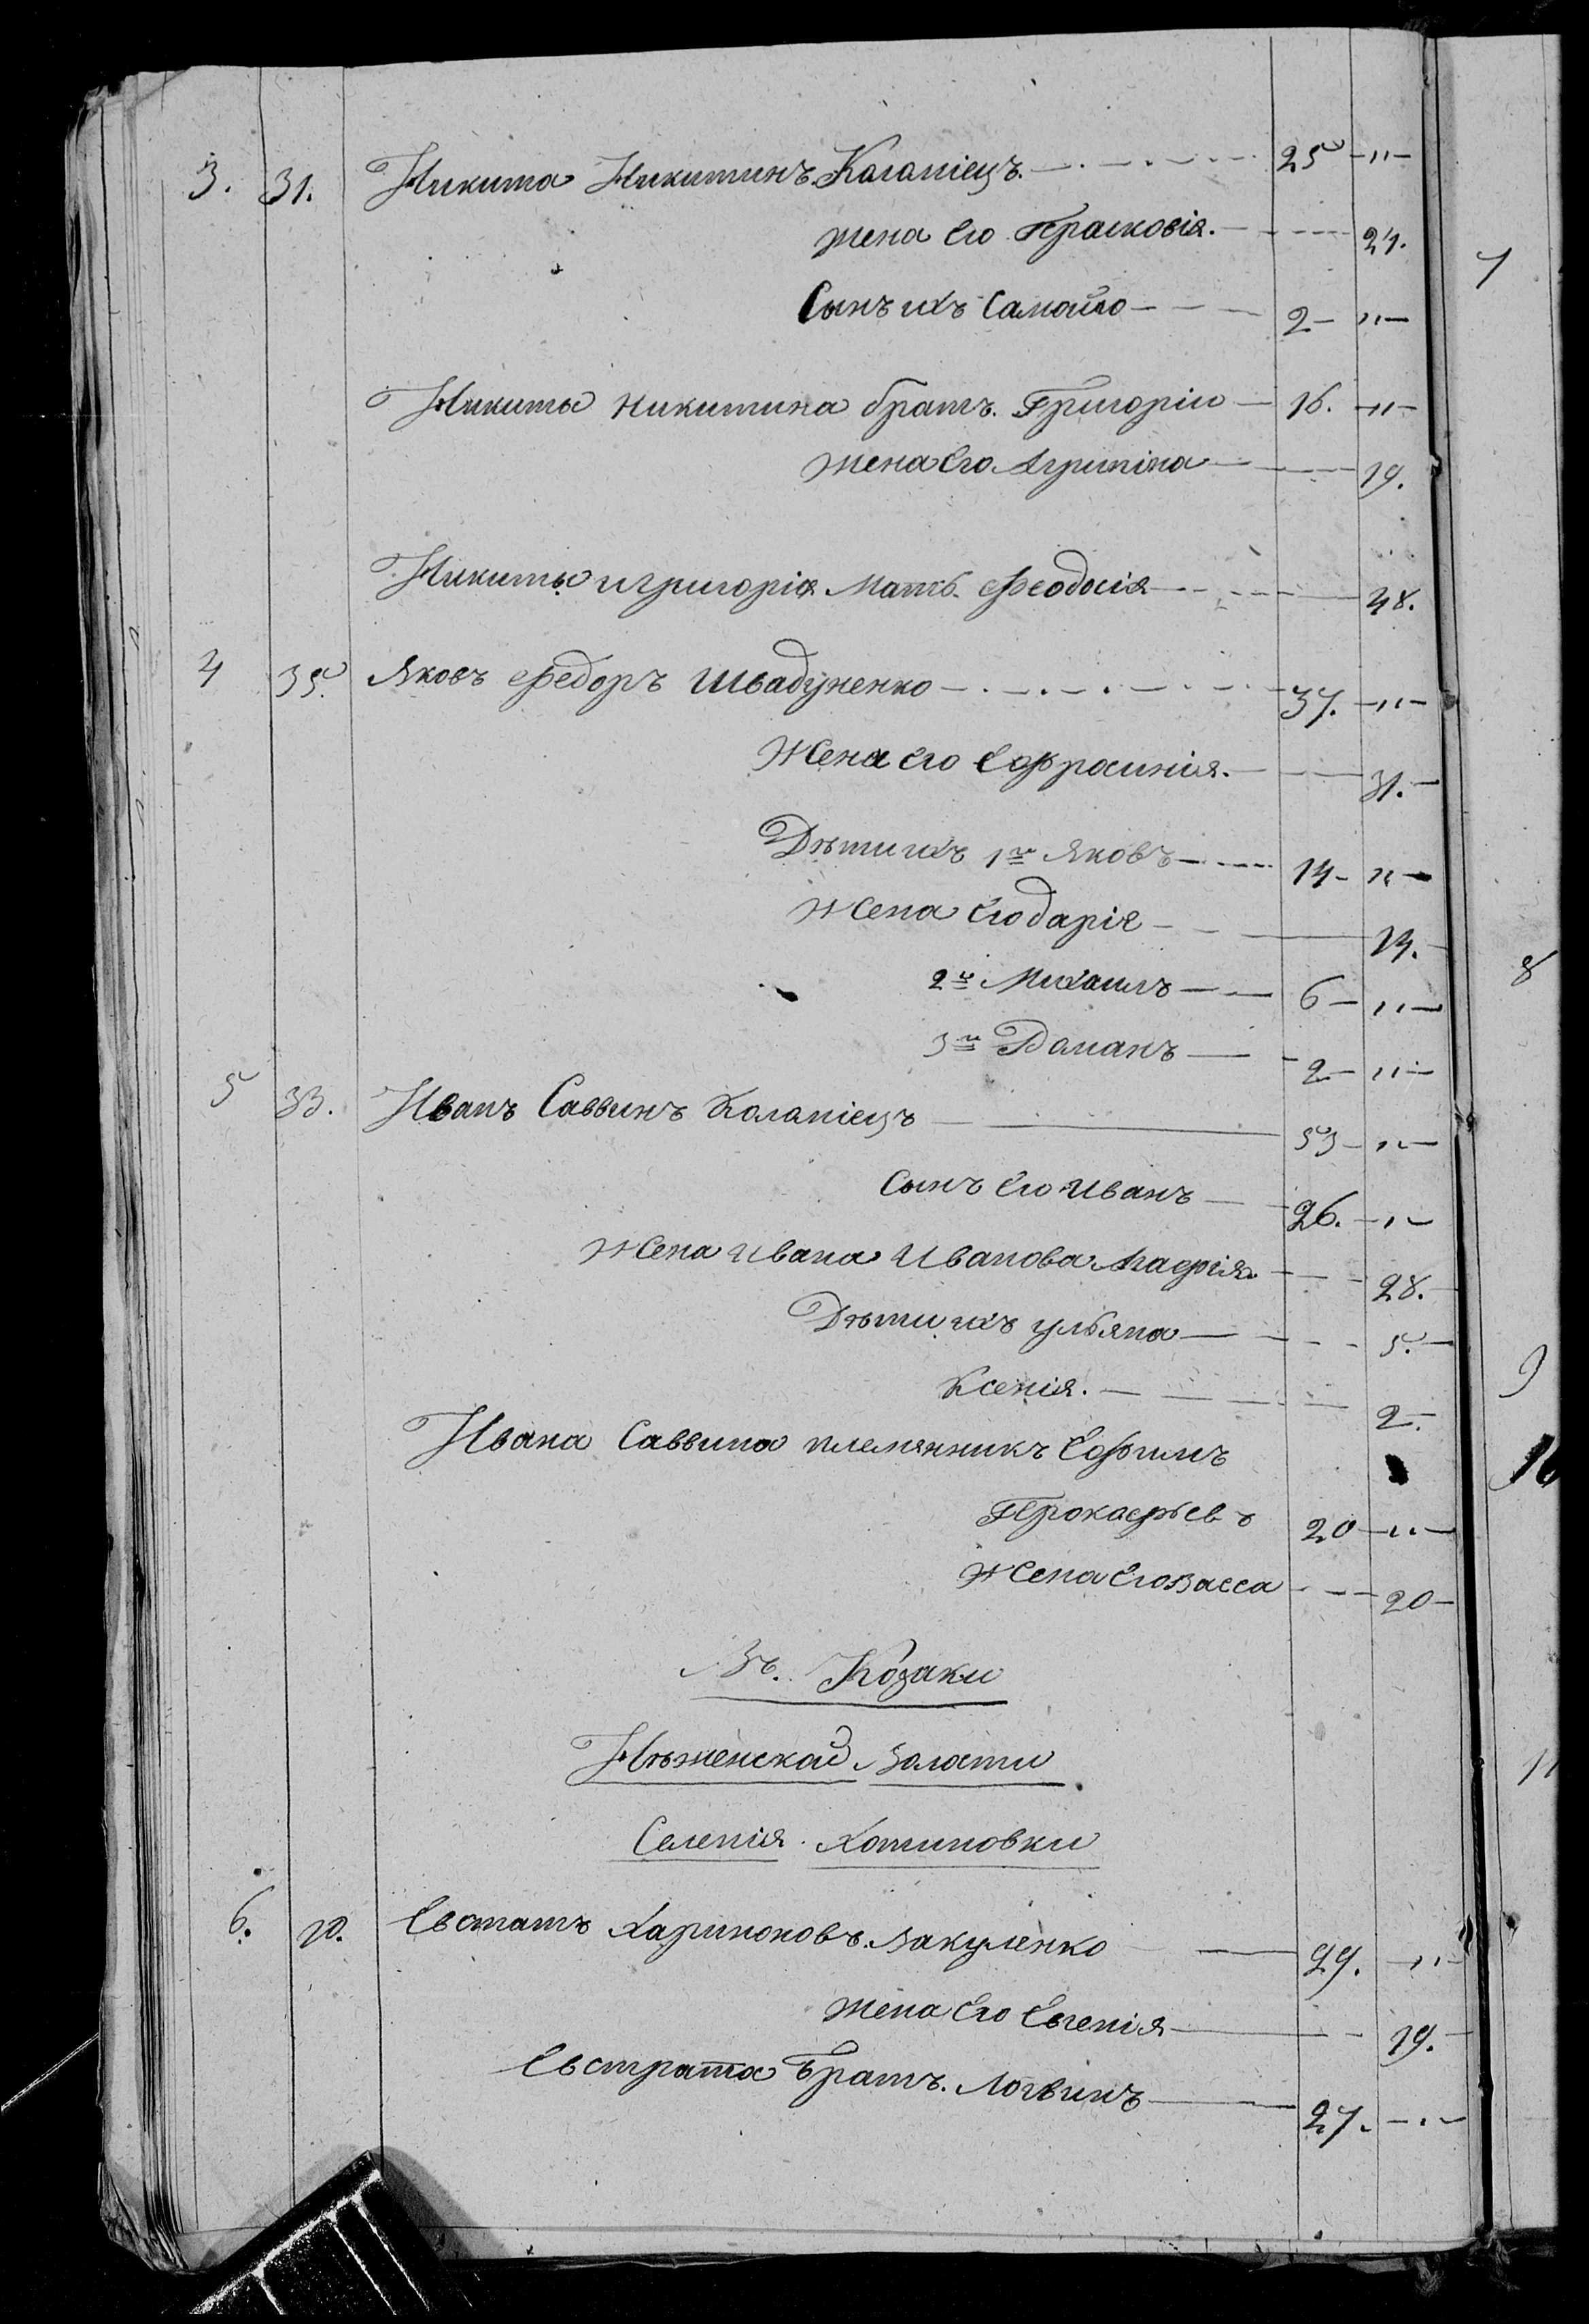 3. 31. Никита Никитинъ Каłапіецъ. 25 "
жена Его Прасковія. 24.
Сынъ ихъ Самойло 2 "
Никиты Никитина братъ. Григоріи 16. "
жена Его Агрипина 19.
Никиты и григорія Мать Феодосія 48.
4 35. Яковъ Федоръ Швадуненко 37. "
Жена Его Ефросинія. 31.
Дѣти ихъ 1й Яковъ 14 "
Жена Его дарія 14.
2й Михаилъ 6 "
3й Романъ 2 "
5 33. Иванъ Саввинъ Колапіецъ 53 "
Сынъ Его Иванъ 26. "
Жена Ивана Иванова Агафія. 28.
Дѣти ихъ ульяна 5.
Ксенія. 2.
Ивана Саввина племянникъ Ефимъ
Прокафьевъ 20 "
Жена Его Васса 20
Въ. Козаки
Нѣженской Волости
Селенія. Хотиновки
6. 10. Евстатъ Харитоновъ. Вакуленко 29. "
жена Его Евгенія 19.
Евстрата Братъ. Логвинъ 27. "
7
8
9
10
11